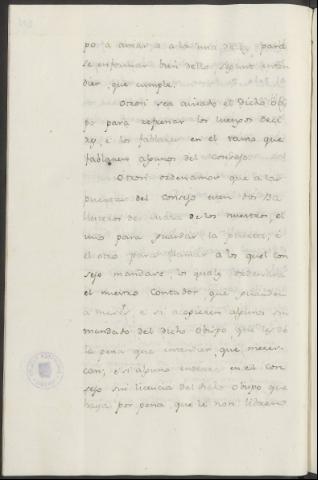 po a amar a la una de
se enformar bien dello, segunt enten
dier, que cumple.
Otrosi sea avisado el dicho Obis
po para refrenar los luengos deci
res, e los fablares en el tanto que
fablaren algunos del Consejo.
Otrosi ordenamos que a las
puertas del Consejo esten dos Ba
llesteros de Maza de los nuestros, el
uno para guardar la puerta, e
el otro para llamar a los quel Con
sejo mandare, los quales ordenara
el nuestro Contador, que guarden
a meses, e si acogieren algunos sin
mandado del dicho Obispo, que les dé
la pena que entendier, que meres
can; e si alguno entrare en el Con
sejo sin licencia del dicho Obispo que
haya por pena, que le non libren